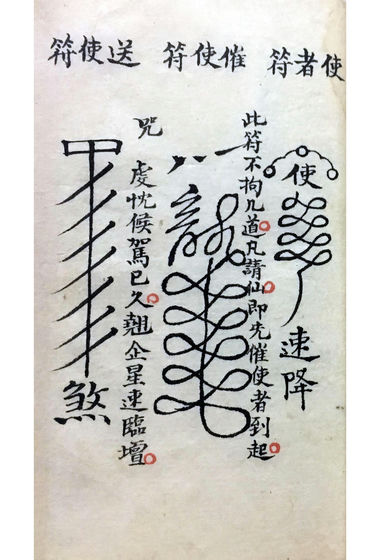 使者符
催使符
送使符
使
速降
此符不拘几道凡請仙即先催使者到起
咒
虔忱候駕已久翹企星速臨壇
煞